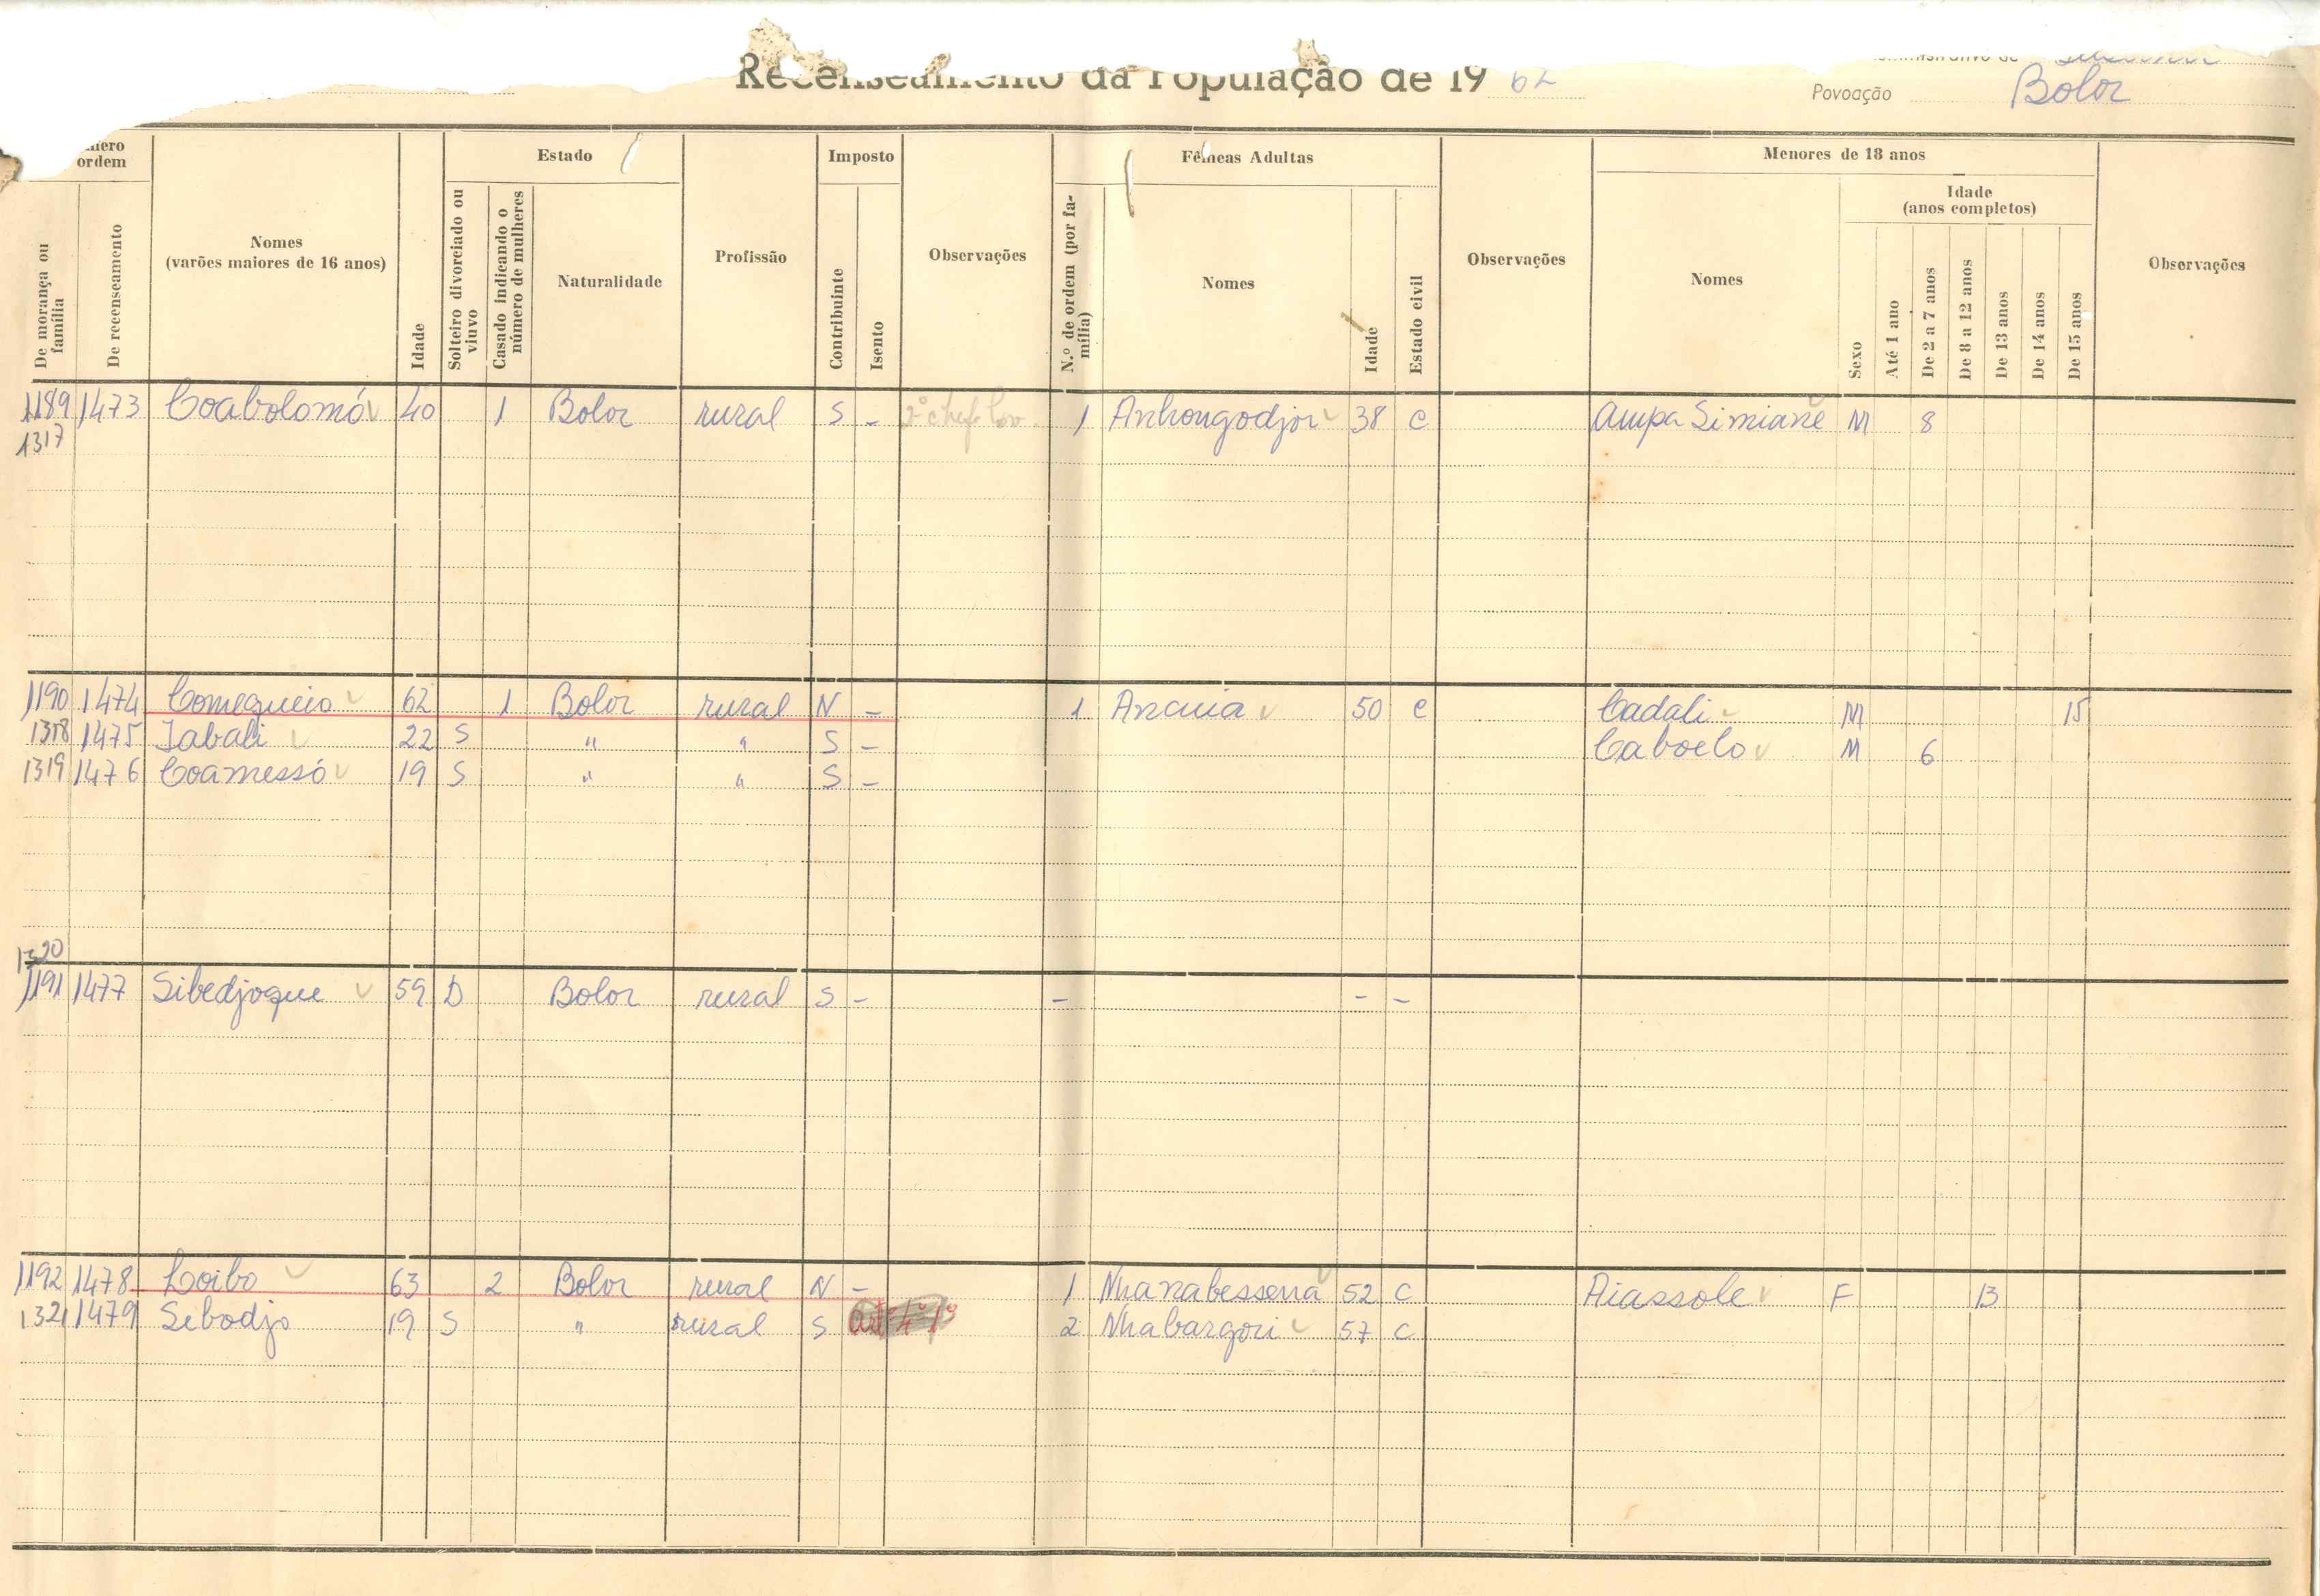 Recenseamento da População de 19 62
Povoação Bolor
ordem
Estado
Imposto
Fêmeas Adultas
Menores de 18 anos
De morança ou família
De recenseamento
Nomes
(varões maiores de 16 anos)
Idade
Solteiro divorciado ou viuvo
Casado indicando o número de mulheres
Naturalidade
Profissão
Contribuinte
Isento
Observações
N.º de ordem (por família)
Nomes
Idade
Estado civil
Observações
Nomes
Sexo
Idade
(anos completos)
Até 1 ano
De 2 a 7 anos
De 8 a 12 anos
De 13 anos
De 14 anos
De 15 anos
Observações
1189 1473 Coabolomó 40 1 Bolor rural S - 2º chef. 1 Anhongodjor 38 C Ampa Simiane M 8
1317
1190 1474 Comequeio 62 1 Bolor rural N - 1 50 C Cadali M 15
1318 1475 Jabali 22 S " " S - Caboelo M 6
1319 1476 Coamessó 19 S " " S -
1320
1191 1477 Sibedjoque 59 D Bolor rural S - - - -
1192 1478 Loibo 63 2 Bolor rural N - 1 Nhanabessena 52 C Aiassole F 13
1321 1479 Sebodjo 19 S " rural S 2 Nhabargori 57 C